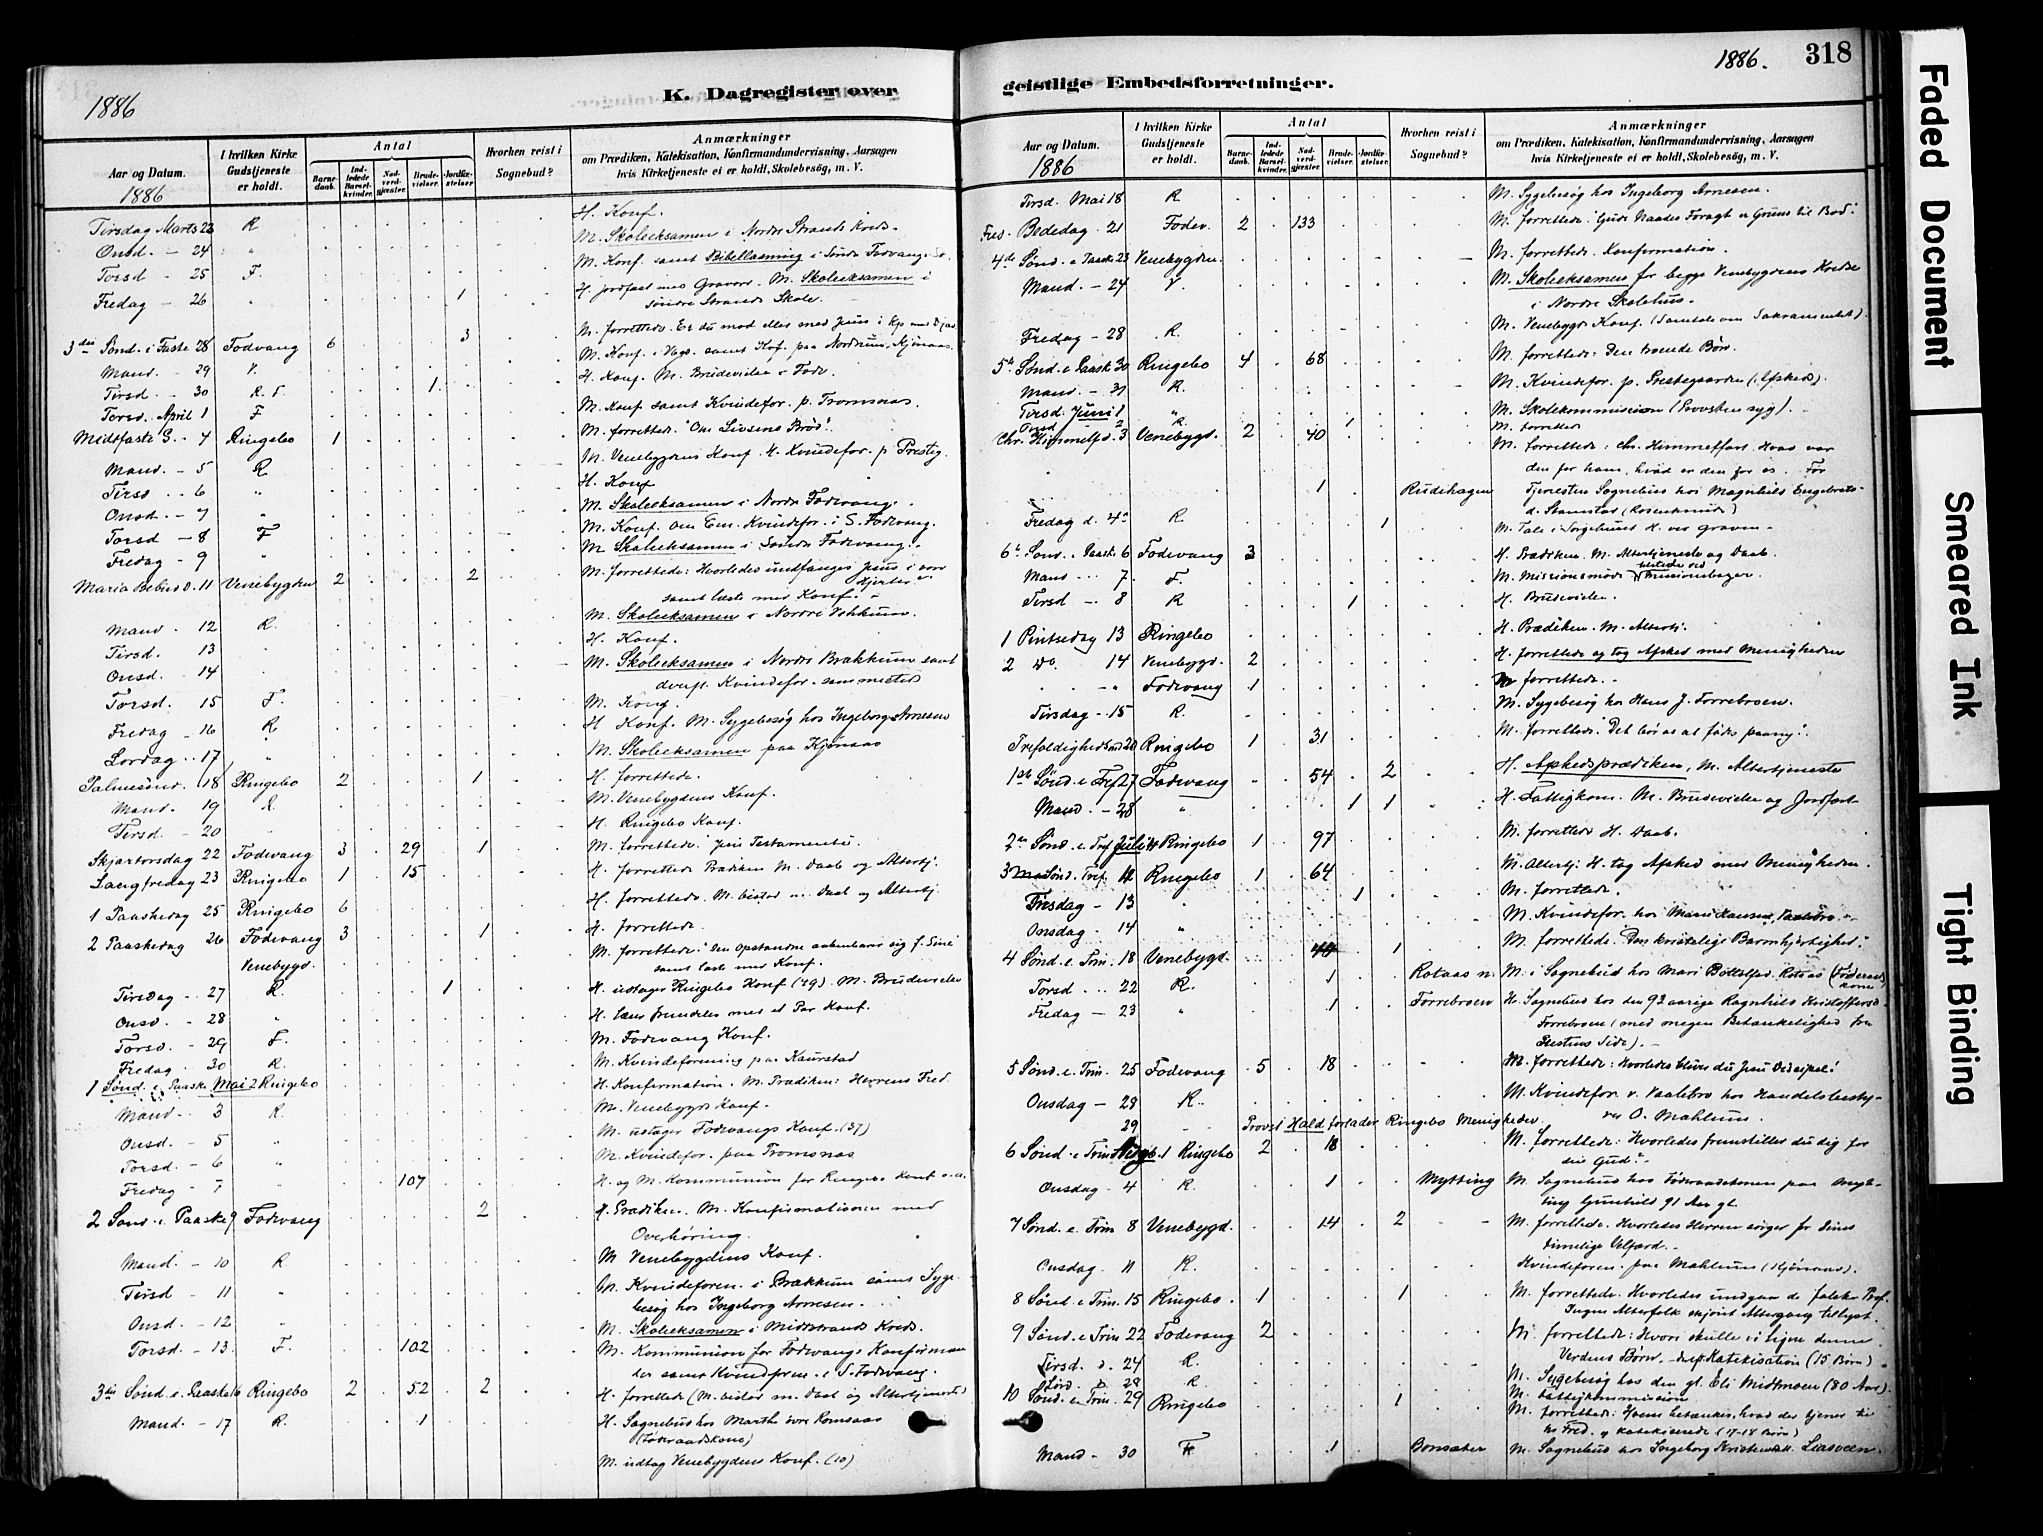 1886
K. Dagregister over
Aar og Datum.
1886
I hvilken Kirke Gudstjeneste er holdt.
Antal
Barne-daab.
Ind-ledede Barsel-kvinder.
Nad-verd-gjester.
Brude-vielser.
Jordfæ-stelser.
Hvorhen reist i Sognebud?
Anmærkninger
om Prædiken, Katekisation, Konfirmandundervisning, Aarsagen
hvis Kirketjeneste ei er holdt, Skolebesög, m. V.
Tirsdag Marts 23 R H. Konf.
Onsd. - 24 " M. Skoleeksamen i Nordre Strands Kreds.
Torsd - 25 F. M. Konf. samt Bibellæsning i Søndre Fodvang
Fredag - 26 " 1 H. jordfæst med Gravøl. M. Skoleeksamen i
Søndre Strands Skole.
3die Sønd. i Faste 28 Fodvang 6 3 M. forrettede. Er du mod eller med Jesus
Mand. - 29 V. M. Konf. i Vgd. samt Kof. paa Nordrum, Kjønaas
Tirsd - 30 R. F. 1 H. Konf. M. Brudevielse i Fodv.
Torsd. April 1 F M. Konf samt Kvindefor. p. Tromsnæs.
Midtfaste S. - 4 Ringebo 1 M. forrettede. "Om Livsens Brød".
Mand. - 5 R M. Venebygdens Konf. H. Kvindefor. p Prestg.
Tirsd - 6 " H. Konf
Onsd. - 7 " M. Skoleeksamen i Nordre Fodvang.
Torsd - 8 F M. Konf. om Em. Kvindefor. i S. Fodvang.
Fredag - 9 " M Skoleeksamen i Søndre Fodevang.
Maria Bebud. D. 11 Venebygden 2 2 M. forrettede: Hvorledes undfanges Jesus i vore
Hjerter?
samt læste med Konf.
Mand - 12 R. M. Skoleeksamen i Nordre Vekkum.
Tirsd. 13 H. Konf.
Onsd. - 14 M. Skoleeksamen i Nordre Brækkum samt
Kvindefor. sammesteds
Torsd. 15 F. M. Konf.
Fredag - 16 R H Konf. M. Sygebesøg hos Ingeborg Arnesen
Lørdag - 17 " M. Skoleeksamen paa Kjønaas
Palmesønd. 18 Ringebo 2 1 H. forrettede.
Mand. 19 R M. Venebygdens Konf.
Tirsd. - 20 H. Ringebo Konf.
Skjærtorsdag 22 Fodevang 3 29 1 M. forrettede. Jesu Testamente.
Langfredag 23 Ringebo 1 15 H. forrettede Prædiken M. Daab og Altertj.
1 Paaskedag 25 Ringebo 6 H. forrettede. M. bistod m. Daab og Altertj.
2 Paaskedag 26 Fodevang 3 1 H. forrettede.
Venebygd. M. forrettede: Den Opstandne aabenbarer sig f. Sine
samt læste med Konf.
Tirsdag - 27 R. 1 H. udtager Ringebo Konf (49). M. Brudevielse
Onsd. - 28 " H. læser fremdeles med et Par Konf.
Torsd. - 29 F. M. Fodevang Konf.
Fredag - 30 R. M. Kvindeforening paa Kaurstad
1 Sønd. e. Paaske Mai 2 Ringebo H. Konfirmation. M. Prædiken: Herrens Fred.
Mand - 3 R. M. Venebygds Konf.
Onsd. - 5 " M. udtager Fodvangs Konf. (37)
Torsd. - 6 " M. Kvindefor. paa Tromsnæs
Fredag - 7 " 107 H. og M. Kommunion for Ringebo Konf o.a.
2 Sønd. e. Paaske 9 Fodvang 2 H. Prædiken. M. Konfirmationen med
Overhøring.
Mand. - 10 R M Venebygdens Konf.
Tirsd - 11 " M. Kvindeforen. i Brækkum samt Syge-
besøg hos Ingeborg Arnesen.
Onsd. - 12 " M. Skoleeksamen i Midtstrands Kreds.
Torsd. - 13 F. 102 M. Kommunion for Fodvangs Konfirman-
der samt Kvindforen. i S. Fodvang.
3die Sønd. e. Paaske 16 Ringebo 2 52 2 H. forrettede (M. bistod m. Daab og Altertjeneste)
Mand. - 17 R. 1 H. Sognebud hos Marthe øvre Romsaas
(Føderaadskone)
M. udtog Venebygdens Konf. (10)
1886. 318
geistlige Embedsforretninger.
Aar og Datum.
1886
I hvilken Kirke Gudstjeneste er holdt.
Antal
Barne-daab.
Ind-ledede Barsel-kvinder.
Nad-verd-gjester.
Brude-vielser.
Jordfæ-stelser.
Hvorhen reist i Sognebud?
Anmærkninger
om Prædiken, Katekisation, Konfirmandundervisning, Aarsagen
hvis Kirketjeneste ei er holdt, Skolebesög, m. V.
Tirsd. Mai 18 R M. Sygebesøg hos Ingeborg Arnesen.
Fred. Bededag - 21 Fodev. 2 133 M. forrettede: Guds Naades Foragt er Grund til Bod.
4de Sønd. e Paask 23 Venebygden M. forrettede. Konfirmation.
Mand. - 24 V. M. Skoleeksamen for begge Venebygdens Kredse
i Nordre Skolehus.
Fredag - 28 R. M. Venebygds Konf. (Samtale om Sakramentet).
5te Sønd. e Paask 30 Ringebo 4 68 M. forrettede: Den troende Bøn.
Mand. - 31 R. M. Kvindefor. p. Prestegaarden (Afsked).
Tirsd. Juni 1 " M. Skolekommission (Provsten syg).
Onsd 2 R. 1 M. forretter
Chr. Himmelfd. 3 Venebygd. 2 40 M. forrettede: Chr. Himmelfart. Hvad var
den for ham, hvad er den for os. Før
1 Rudihagen Tjenesten Sognebud hos Magnhild Engebrets-
d. Stamstad (Rosenkrands)
Fredag d. 4de R 1 M. Tale i Sørgehuset H. ved Graven
6te Sønd. e. Paask. 6 Fodevang 3 H. Prædiken. M. Altertjeneste og Daab.
Mand - 7. F. M. Missionsmøde
Tirsd - 8 R 1 H. Brudevielse.
1 Pintsedag 13 Ringebo H. Prædiken. M. Altertj.
2 Do. 14 Venebygd. 2 H. forrettede og tog Afsked med Menigheden
" Fodevang 1 M forrettede.
Tirsdag - 15 R. M. Sygebesøg hos Hans J. Forrebroen.
Trefoldigheds S. 20 Ringebo 1 31 M. forrettede: Det bør os at fødes paany.
1ste Sønd. e. Tref 27 Fodevang 54 2 H. Afskedsprædiken, M. Altertjeneste
Mand. - 28 " 1 1 H. Fattigkom. M. Brudevielse og Jordfæst.
2den Sønd. e. Tref Juli 4 Ringebo 1 97 M. forrettede H. Daab.
3 Sønd. Tref. 11 Ringebo 1 64 M. Altertj. H. tog Afsked med Menigheden.
Tirsdag - 13 " 1 M. forrettede.
Onsdag - 14 " M. Kvindefor. hos Mari Hansen, Vaalebro
4 Sønd. e. Trin. 18 Venebygd. 40 1 M. forrettede. Den kristelige Barmhjertighed.
Torsd - 22 R. 1 Rotaas n. M. i Sognebud hos Mari Bottolfsd. Rotaas (Føderaads-
kone)
Fredag - 23 " 1 Forrebroen H. Sognebud hos den 92 aarige Ragnhild Kristoffersd.
Forrebroen (med megen Betænkelighed fra
Prestens Side).
5 Sønd. e. Trin. 25 Fodevang 5 18 M. forrettede: Hvorledes blives du Jesu Discipel?
Onsdag - 28 R. M. Kvindefor. v. Vaalebro hos Handelsbesty-
rer O. Mahlum.
29 Provst Hald forlader Ringebo Menigheder.
6 Sønd. e. Trin. Aug. 1 Ringebo 2 18 M. forrettede: Hvorledes fremstiller du dig for
din Gud?
Onsdag - 4 R. 1 Mytting M. Sognebud hos Føderaadskonen paa Myt-
ting Gunhild 91 Aar gl.
7 Sønd. e. Trin 8 Venebygd. 14 2 M. forrettede. Hvorledes Herren sørger for dines
timelige Velfærd.
Onsdag. 11 R. Kvindeforen. paa Mahlum (Kjønaas).
8 Sønd. e Trin. 15 Ringebo. 1 1 M. forrettede. Hvorledes undgaa de falske Prof.
Ingen Alterfolk skjønt Altergang tillyst.
9 Sønd. e Trin 22 Fodevang 2 M. forrettede: Hvori skulle vi ligne denne
Verdens Børn. Katekisation (15 Børn)
Tirsd. d. 24 R. M. Sygebesøg hos den gl. Eli Midtmoen (80 Aar).
Lørd. d. 28 R M. Fattigkommission
10 Sønd. e. Trin. 29 Ringebo 1 M. forrettede: Hjem betænker, hvad der tjener til
Fred. og katekiserede (17-18 Børn)
Mand - 30 F. 1 Bonsæter M. Sognebud hos Ingeborg
Faded Document
Smeared Ink
Tight Binding